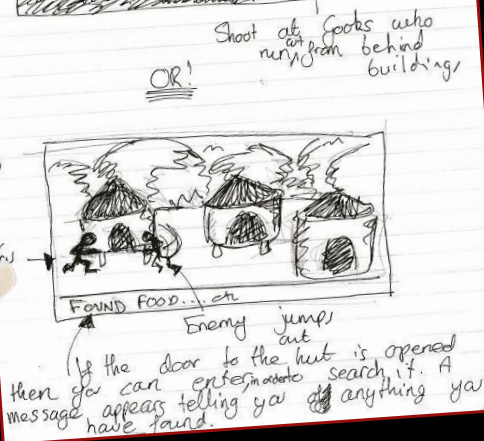 Shoot at Gooks who
run out from behind
buildings
OR!
FOUND FOOD....etc
Enemy jumps
out
If the door to the hut is opened
then you can enter, in order to search it. A
message appears telling you of anything you
have found.